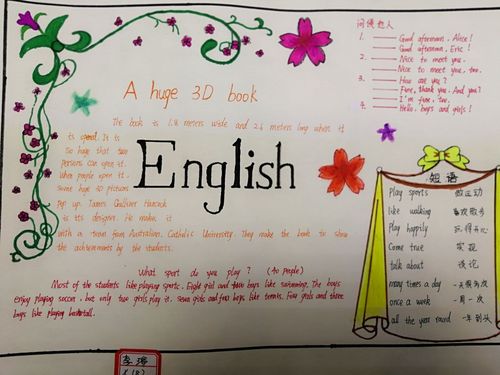 问候他人
1. Good afternoon, Alice!
Good afternoon, Eric!
2. Nice to meet you.
Nice to meet you, too.
3. How are you?
Fine, thank you. And you?
I'm fine, too.
4. Hello, boys and girls!
A huge 3D book
The book is 1.8 meters wide and 2.6 meters long when it
is It is
so huge that two
persons can open it.
When people open it
Some huge 3D pictures
Pop up. James Gulliver Hancock
is its designer. He makes it
with a team from Australian Catholic University. They make the book to show
the achievements by the students.
English
What sport do you play? (40 people)
Most of the students like playing sports. Eight girl and boys like swimming. The boys
enjoy playing soccer, but only two girls play it. Seven girls and four boys like tennis. Four girls and three
boys like playing basketball.
短语
Play sports 做运动
like walking 喜欢散步
Play happily 玩得开心
Come true 实现
talk about 谈论
many times a day 一天很多次
once a week 一周一次
all the year round 一年到头